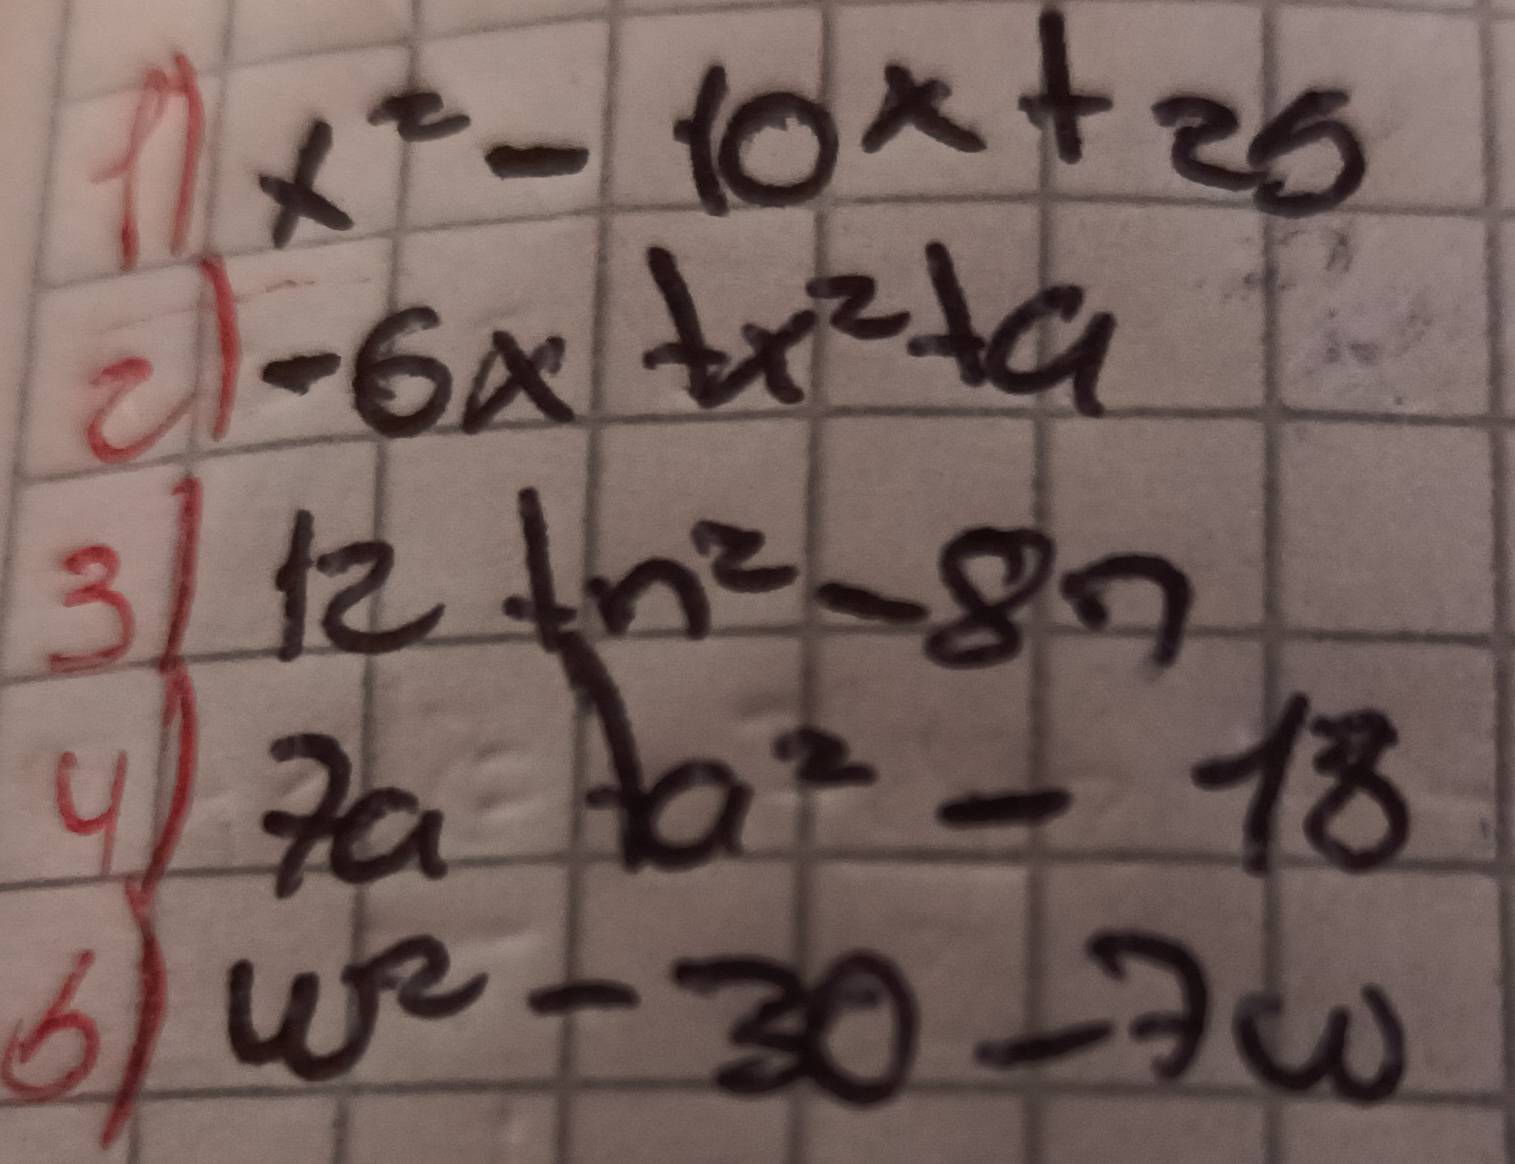 1) x² - 10x + 25
2) -6x + x² + 9
3) 12 + n² - 8n
4) 7a + a² - 18
5) w² - 30 - 7w